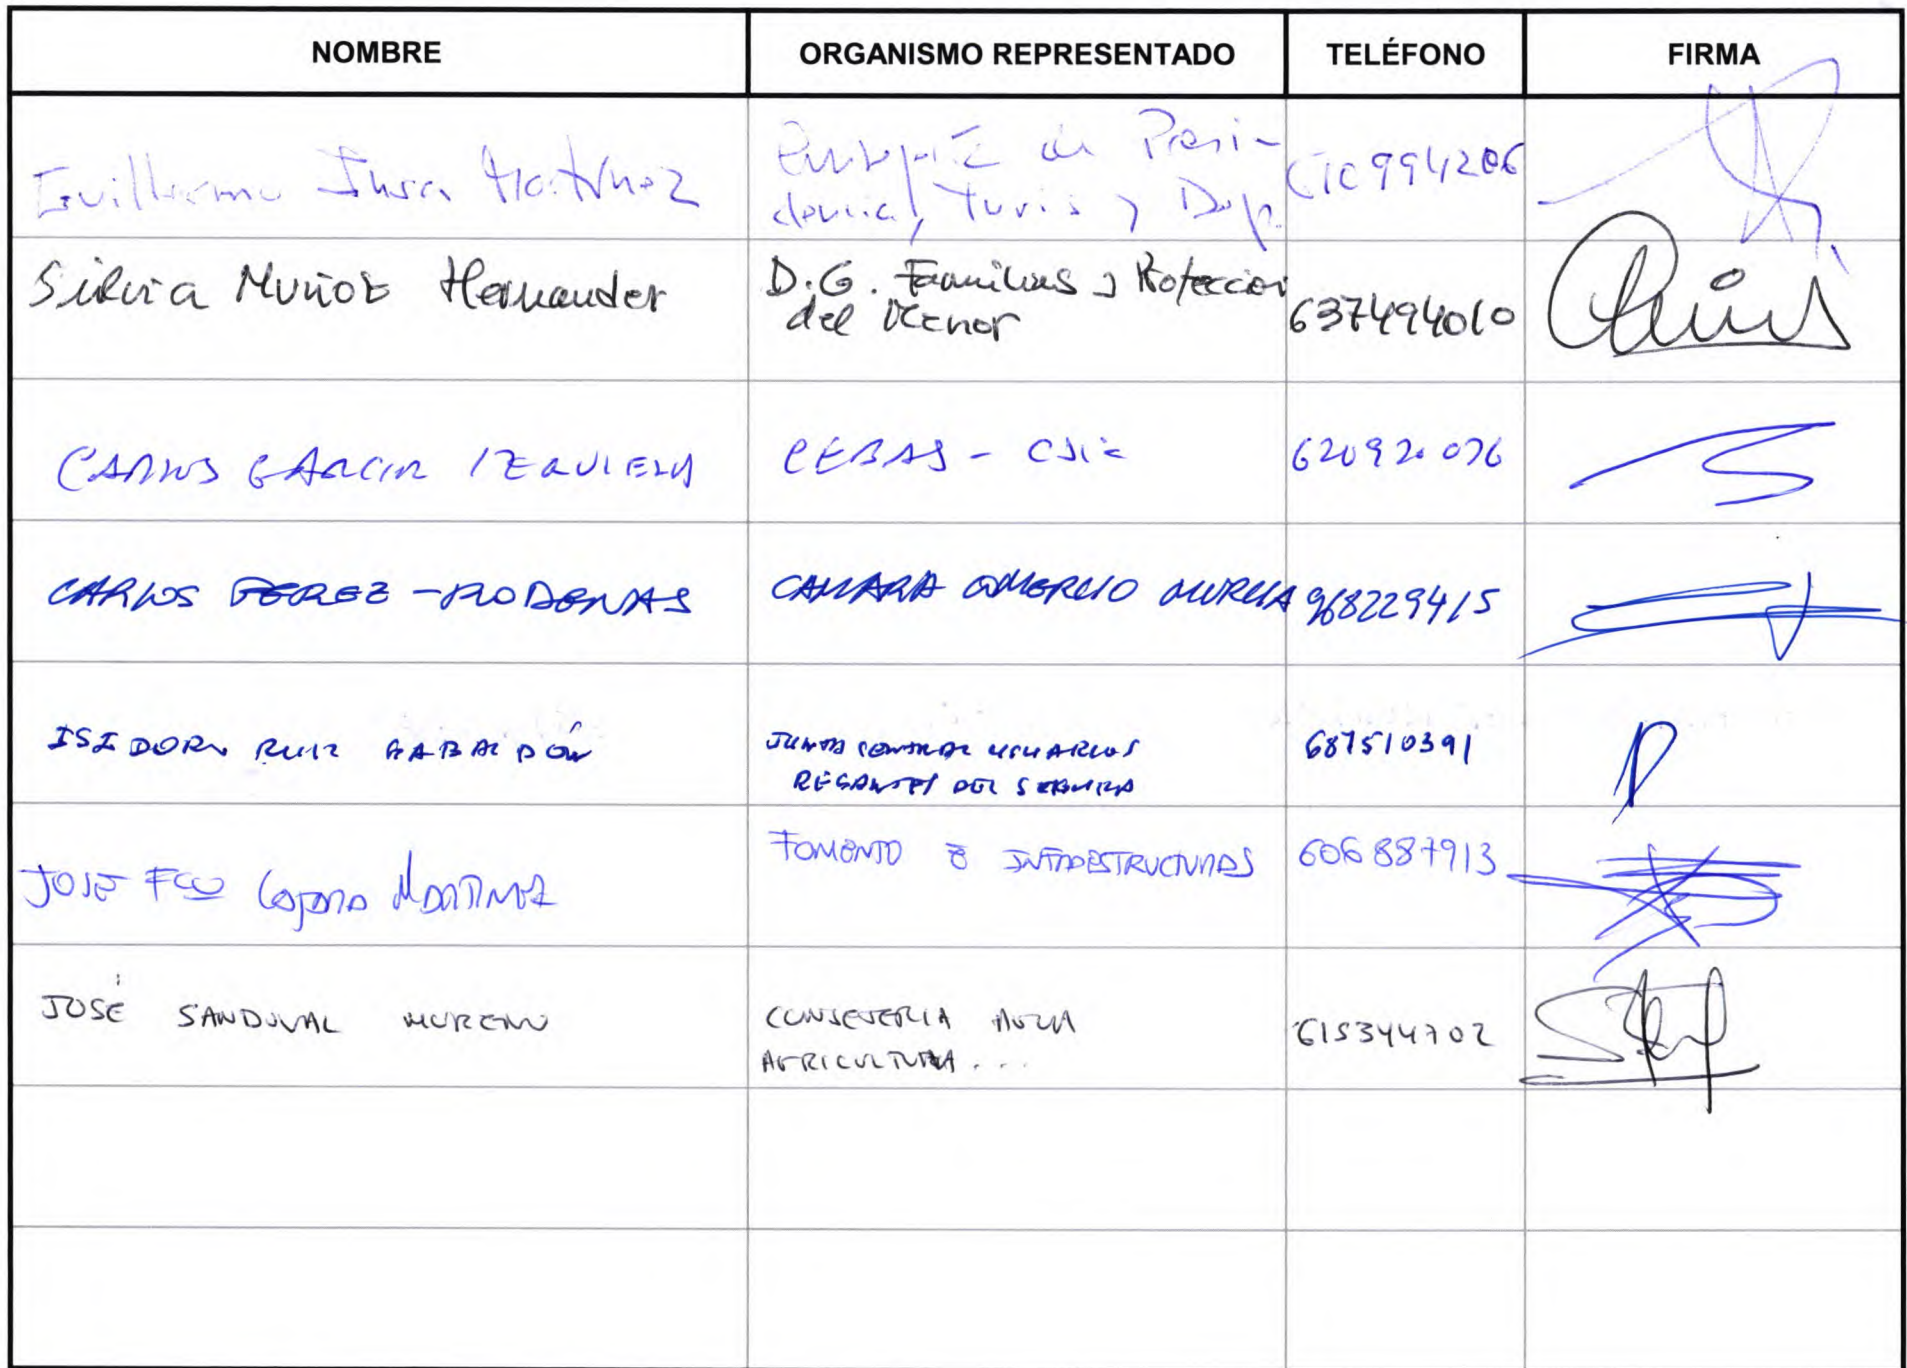 NOMBRE ORGANISMO REPRESENTADO TELÉFONO FIRMA
Guillermo Insa Martínez de Presi-
dencia, Turis y Dep.
Silvia Muñoz Hernandez D.G. Familias y Protección
del Menor 637494010
CARLOS GARCIA IZQUIERDO CEBAS - CSIC 620920076
CARLOS PEREZ-RODENAS CAMARA COMERCIO MURCIA 968229415
ISIDORO RUIZ GABALDÓN JUNTA CENTRAL USUARIOS 687510391
REGANTES DEL SEGURA
JOSE FCO MARTINEZ FOMENTO E INFRAESTRUCTURAS 606887913
JOSÉ SANDOVAL MORENO CONSEJERIA AGUA 615344702
AGRICULTURA...